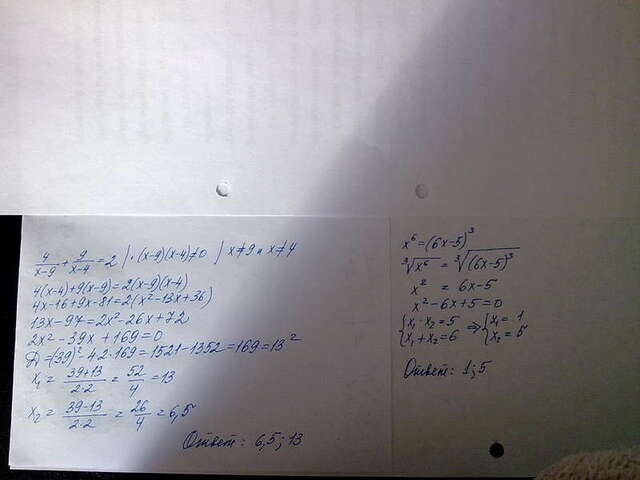 4/(x-9) + 9/(x-4) = 2 | · (x-9)(x-4)≠0 | x≠9 и x≠4
4(x-4)+9(x-9)=2(x-9)(x-4)
4x-16+9x-81=2(x²-13x+36)
13x-97=2x²-26x+72
2x²-39x+169=0
D=(39)²-4·2·169=1521-1352=169=13²
x₁ = (39+13)/(2·2) = 52/4 = 13
x₂ = (39-13)/(2·2) = 26/4 = 6,5
Ответ: 6,5; 13
x⁶=(6x-5)³
∛x⁶ = ∛(6x-5)³
x² = 6x-5
x²-6x+5=0
{x₁·x₂=5 ⇒ {x₁=1
{x₁+x₂=6 {x₂=5
Ответ: 1;5